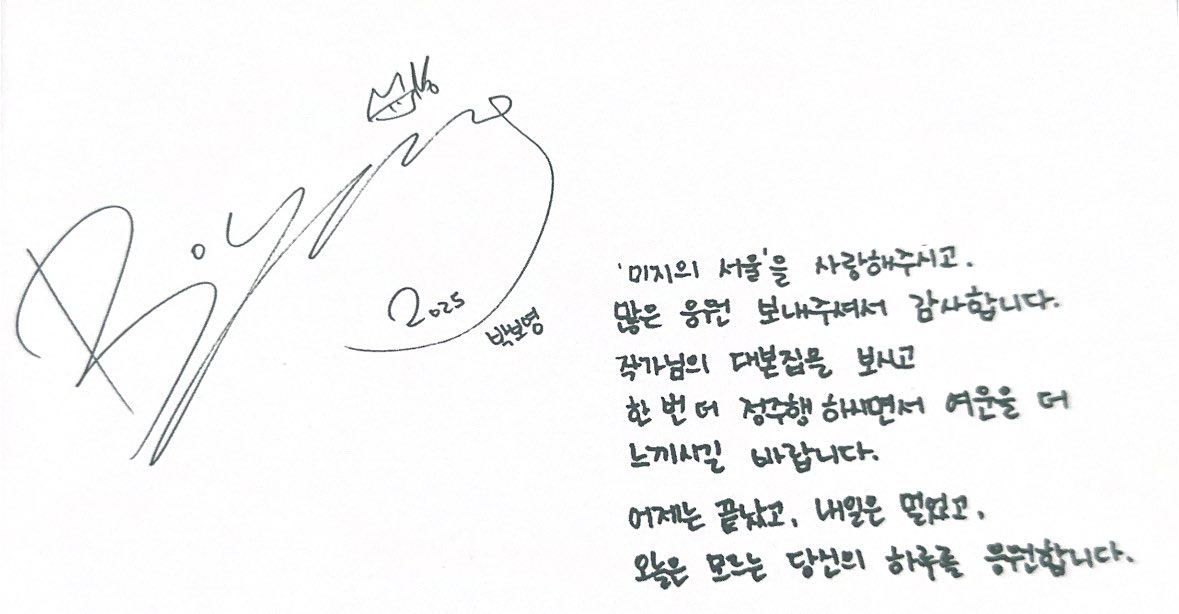 2025
박보영
'미지의 서울'을 사랑해주시고.
많은 응원 보내주셔서 감사합니다.
작가님의 대본집을 보시고
한 번 더 정주행 하시면서 여운을 더
느끼시길 바랍니다.
어제는 끝났고, 내일은 멀었고,
오늘은 모르는 당신의 하루를 응원합니다.